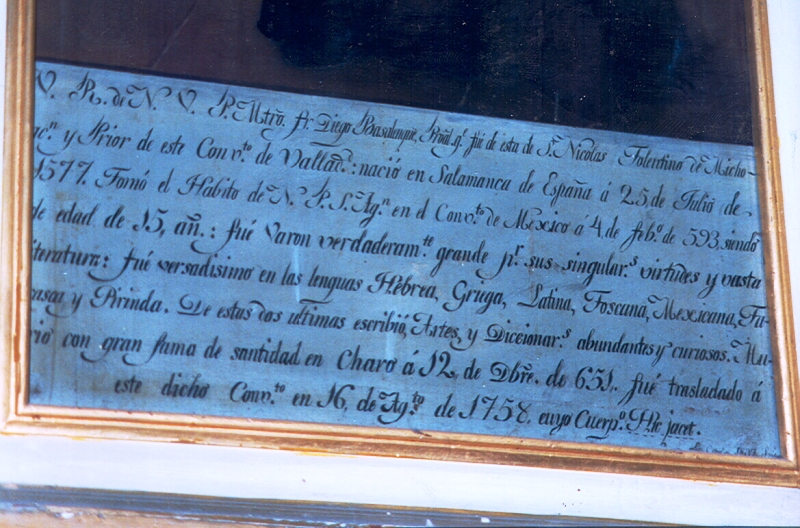 V. R. de N. V. P. Mtrô. fr. Diego Basalenque, Provâl. qᵉ. fué de esta de Sⁿ. Nicolas Tolentino de Micho-
acⁿ. y Prior de este Convᵗᵒ. de Valladᵈ.: nació en Salamanca de España á 25, de Julio de
1577. Tomó el Habito de N. P. S. Agⁿ. en el Convᵗᵒ. de Mexico á 4 de febᵒ. de 593, siendo
de edad de 15, añˢ.: fué Varon verdaderamᵗᵉ. grande pʳ. sus singularˢ. virtudes y vasta
literatura: fué versadisimo en las lenguas Hebrea, Griega, Latina, Toscana, Mexicana, Ta-
rasca y Pirinda. De estas dos ultimas escribió, Artes, y Diccionarˢ. abundantes y curiosos. Mu-
rió con gran fama de santidad en Charo á 12, de Dbrê. de 651. fué trasladado á
este dicho Convᵗᵒ. en 16, de Agᵗᵒ. de 1758. cuyo Cuerpᵒ. Hic jacet.